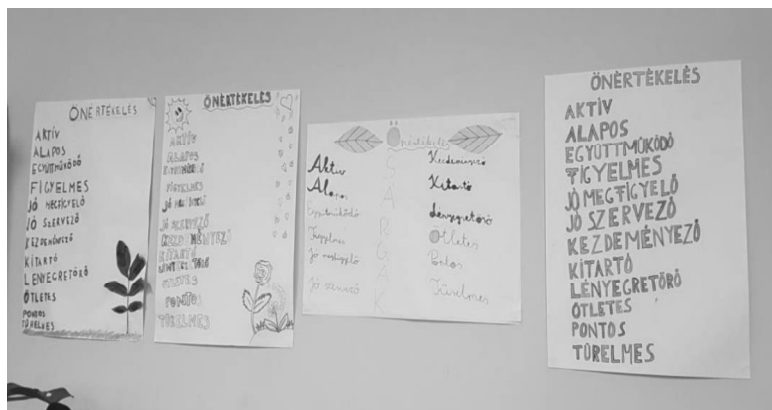 ÖNÉRTÉKELÉS
AKTÍV
ALAPOS
EGYÜTTMŰKÖDŐ
FIGYELMES
JÓ MEGFIGYELŐ
JÓ SZERVEZŐ
KEZDEMÉNYEZŐ
KITARTÓ
LÉNYEGRETÖRŐ
ÖTLETES
PONTOS
TÜRELMES
ÖNÉRTÉKELÉS
AKTÍV
ALAPOS
EGYÜTTMŰKÖDŐ
FIGYELMES
JÓ MEGFIGYELŐ
JÓ SZERVEZŐ
KEZDEMÉNYEZŐ
KITARTÓ
LÉNYEGRETÖRŐ
ÖTLETES
PONTOS
TÜRELMES
Önértékelés
SÁRGÁK
Aktív
Alapos
Együttműködő
Figyelmes
Jó megfigyelő
Jó szervező
Kezdeményező
Kitartó
Lényegretörő
Ötletes
Pontos
Türelmes
ÖNÉRTÉKELÉS
AKTÍV
ALAPOS
EGYÜTTMŰKÖDŐ
FIGYELMES
JÓ MEGFIGYELŐ
JÓ SZERVEZŐ
KEZDEMÉNYEZŐ
KITARTÓ
LÉNYEGRETÖRŐ
ÖTLETES
PONTOS
TÜRELMES